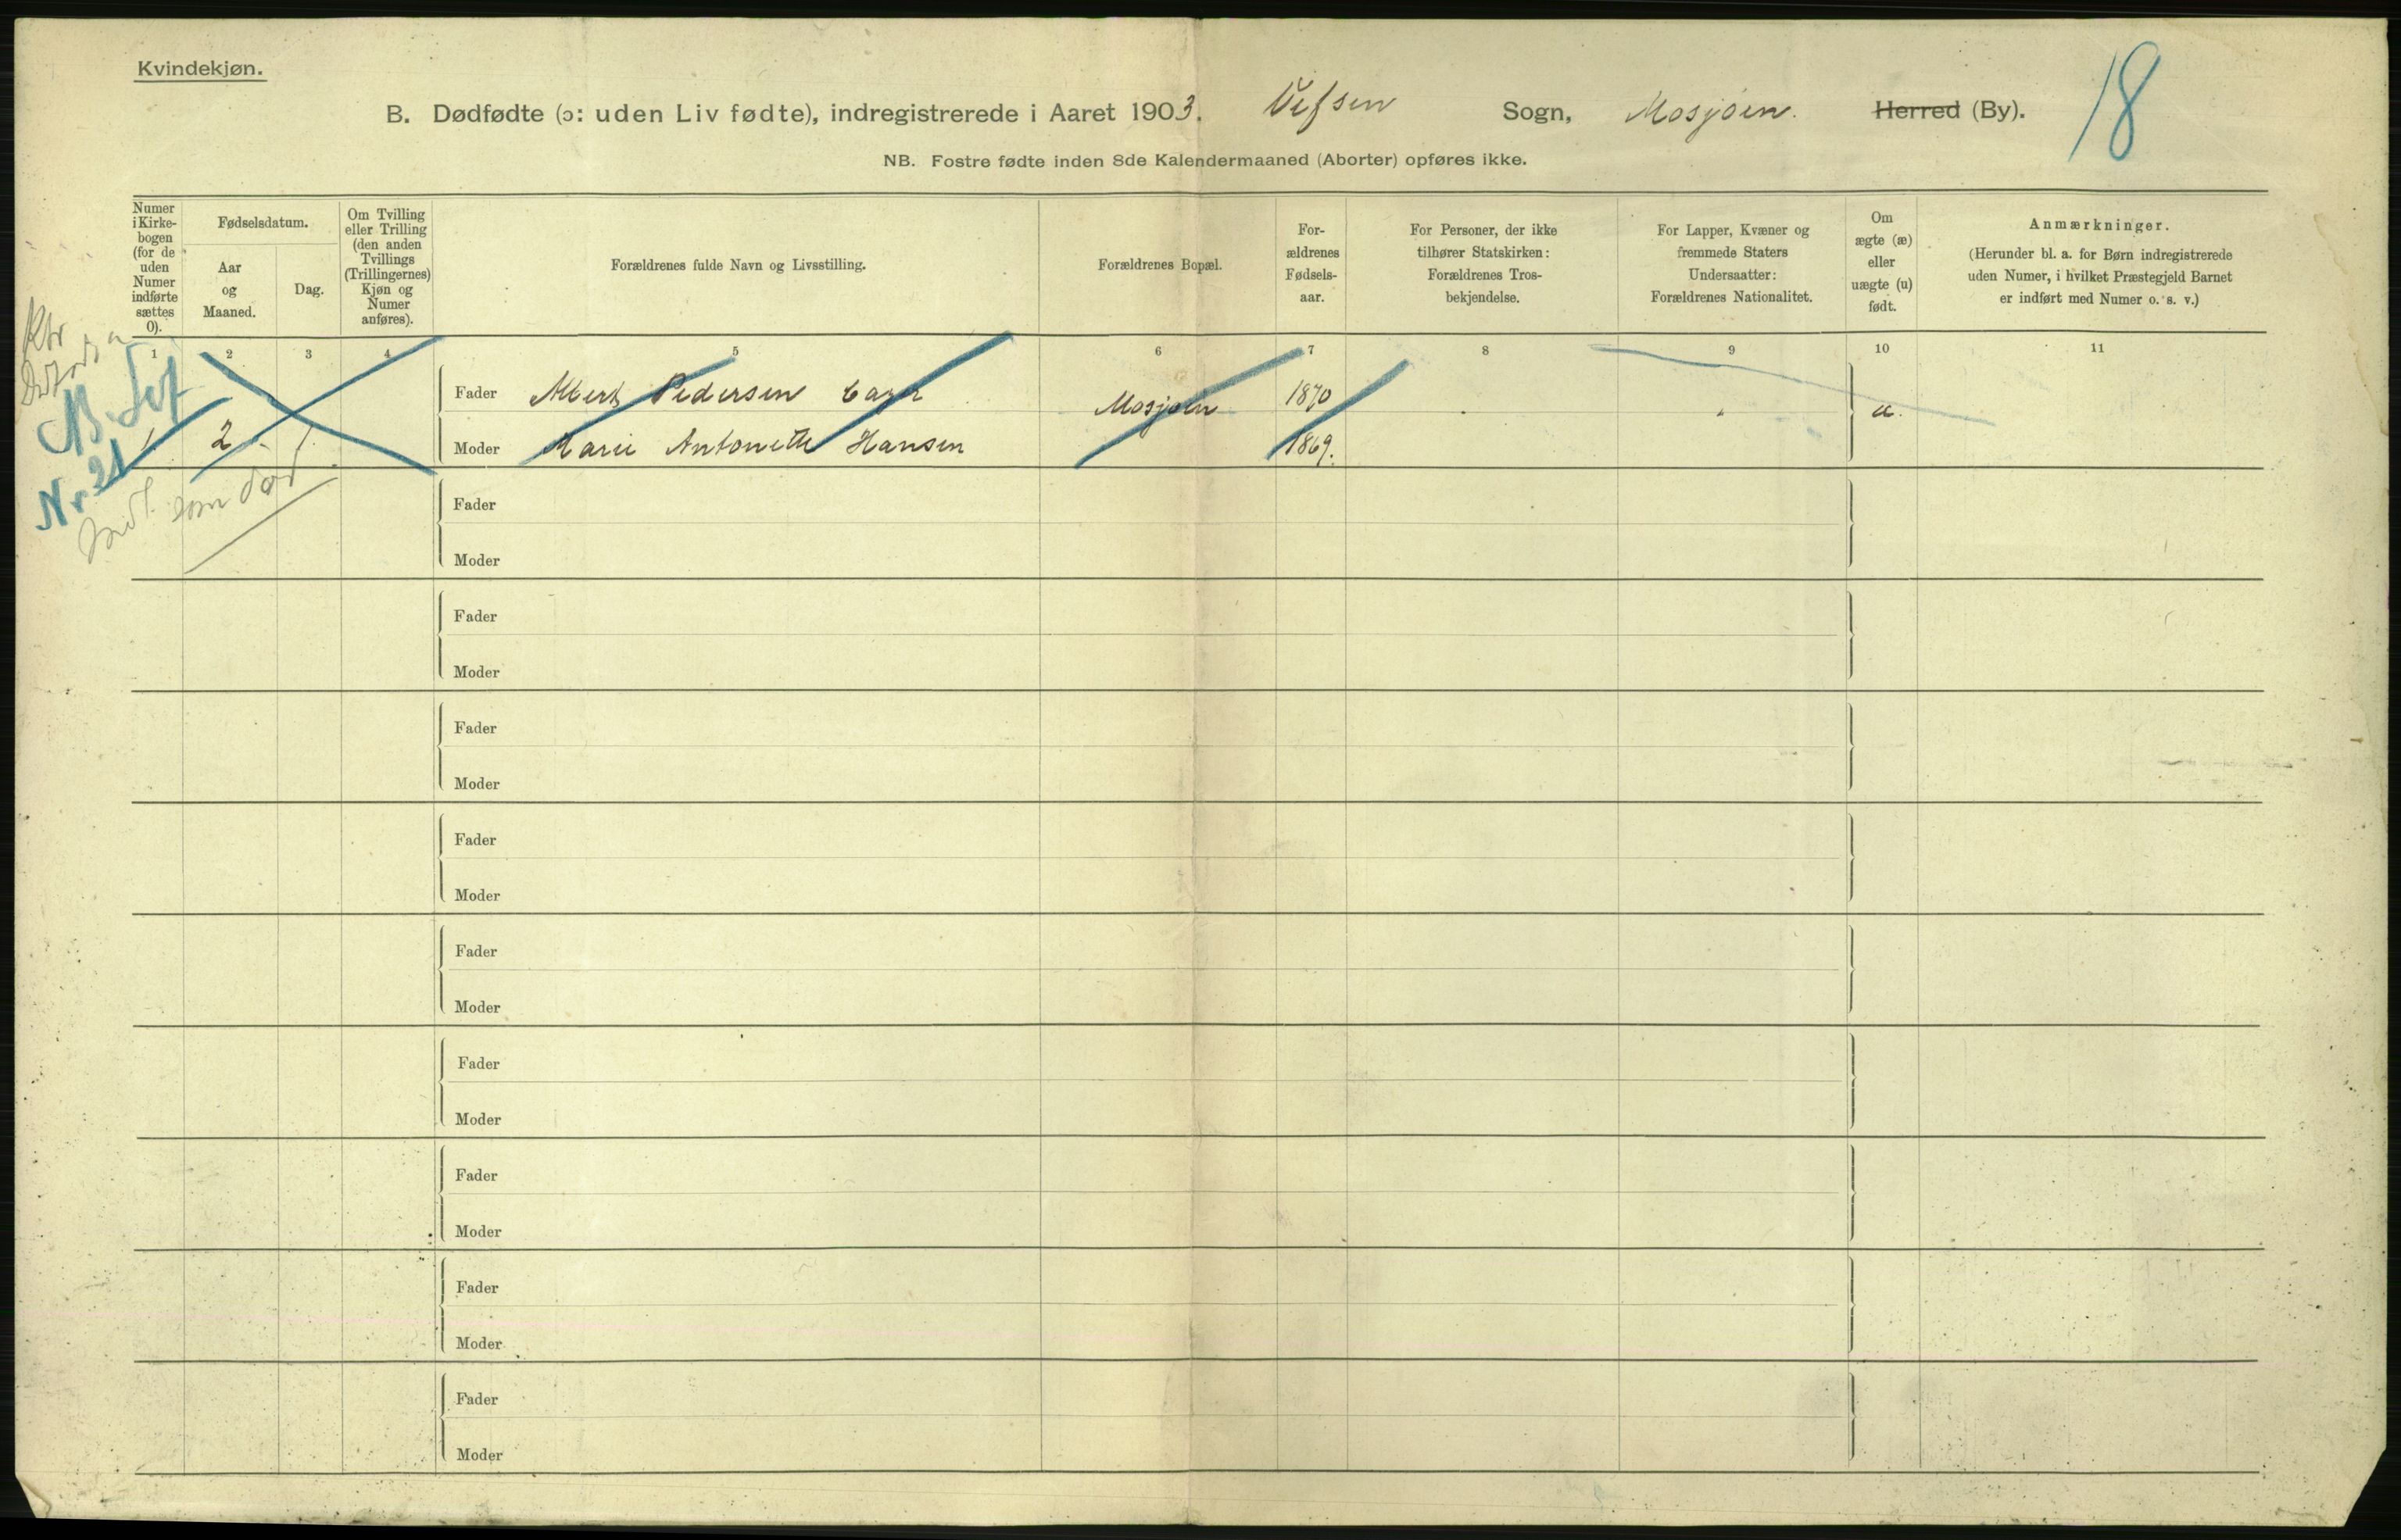 Kvindekjøn.
B. Dødfødte (ɔ: uden Liv fødte), indregistrerede i Aaret 1903. Vefsen Sogn, Mosjøen. Herred (By).
18
NB. Fostre fødte inden 8de Kalendermaaned (Aborter) opføres ikke.
Numer
i Kirke-
bogen
(for de
uden
Numer
indførte
sættes
0).
Fødselsdatum.
Aar
og
Maaned.
Dag.
Om Tvilling
eller Trilling
(den anden
Tvillings
(Trillingernes)
Kjøn og
Numer
anføres).
Forældrenes fulde Navn og Livsstilling.
Forældrenes Bopæl.
For-
ældrenes
Fødsels-
aar.
For Personer, der ikke
tilhører Statskirken:
Forældrenes Tros-
bekjendelse.
For Lapper, Kvæner og
fremmede Staters
Undersaatter:
Forældrenes Nationalitet.
Om
ægte (æ)
eller
uægte (u)
født.
Anmærkninger.
(Herunder bl. a. for Børn indregistrerede
uden Numer, i hvilket Præstegjeld Barnet
er indført med Numer o. s. v.)
1 2 3 4 5 6 7 8 9 10 11
Fader Albert Pedersen 1870
1. 2 1. Mosjøen
Moder Marie Antonette Hansen 1869.
Nr 21
som død
Fader
Moder
Fader
Moder
Fader
Moder
Fader
Moder
Fader
Moder
Fader
Moder
Fader
Moder
Fader
Moder
Fader
Moder